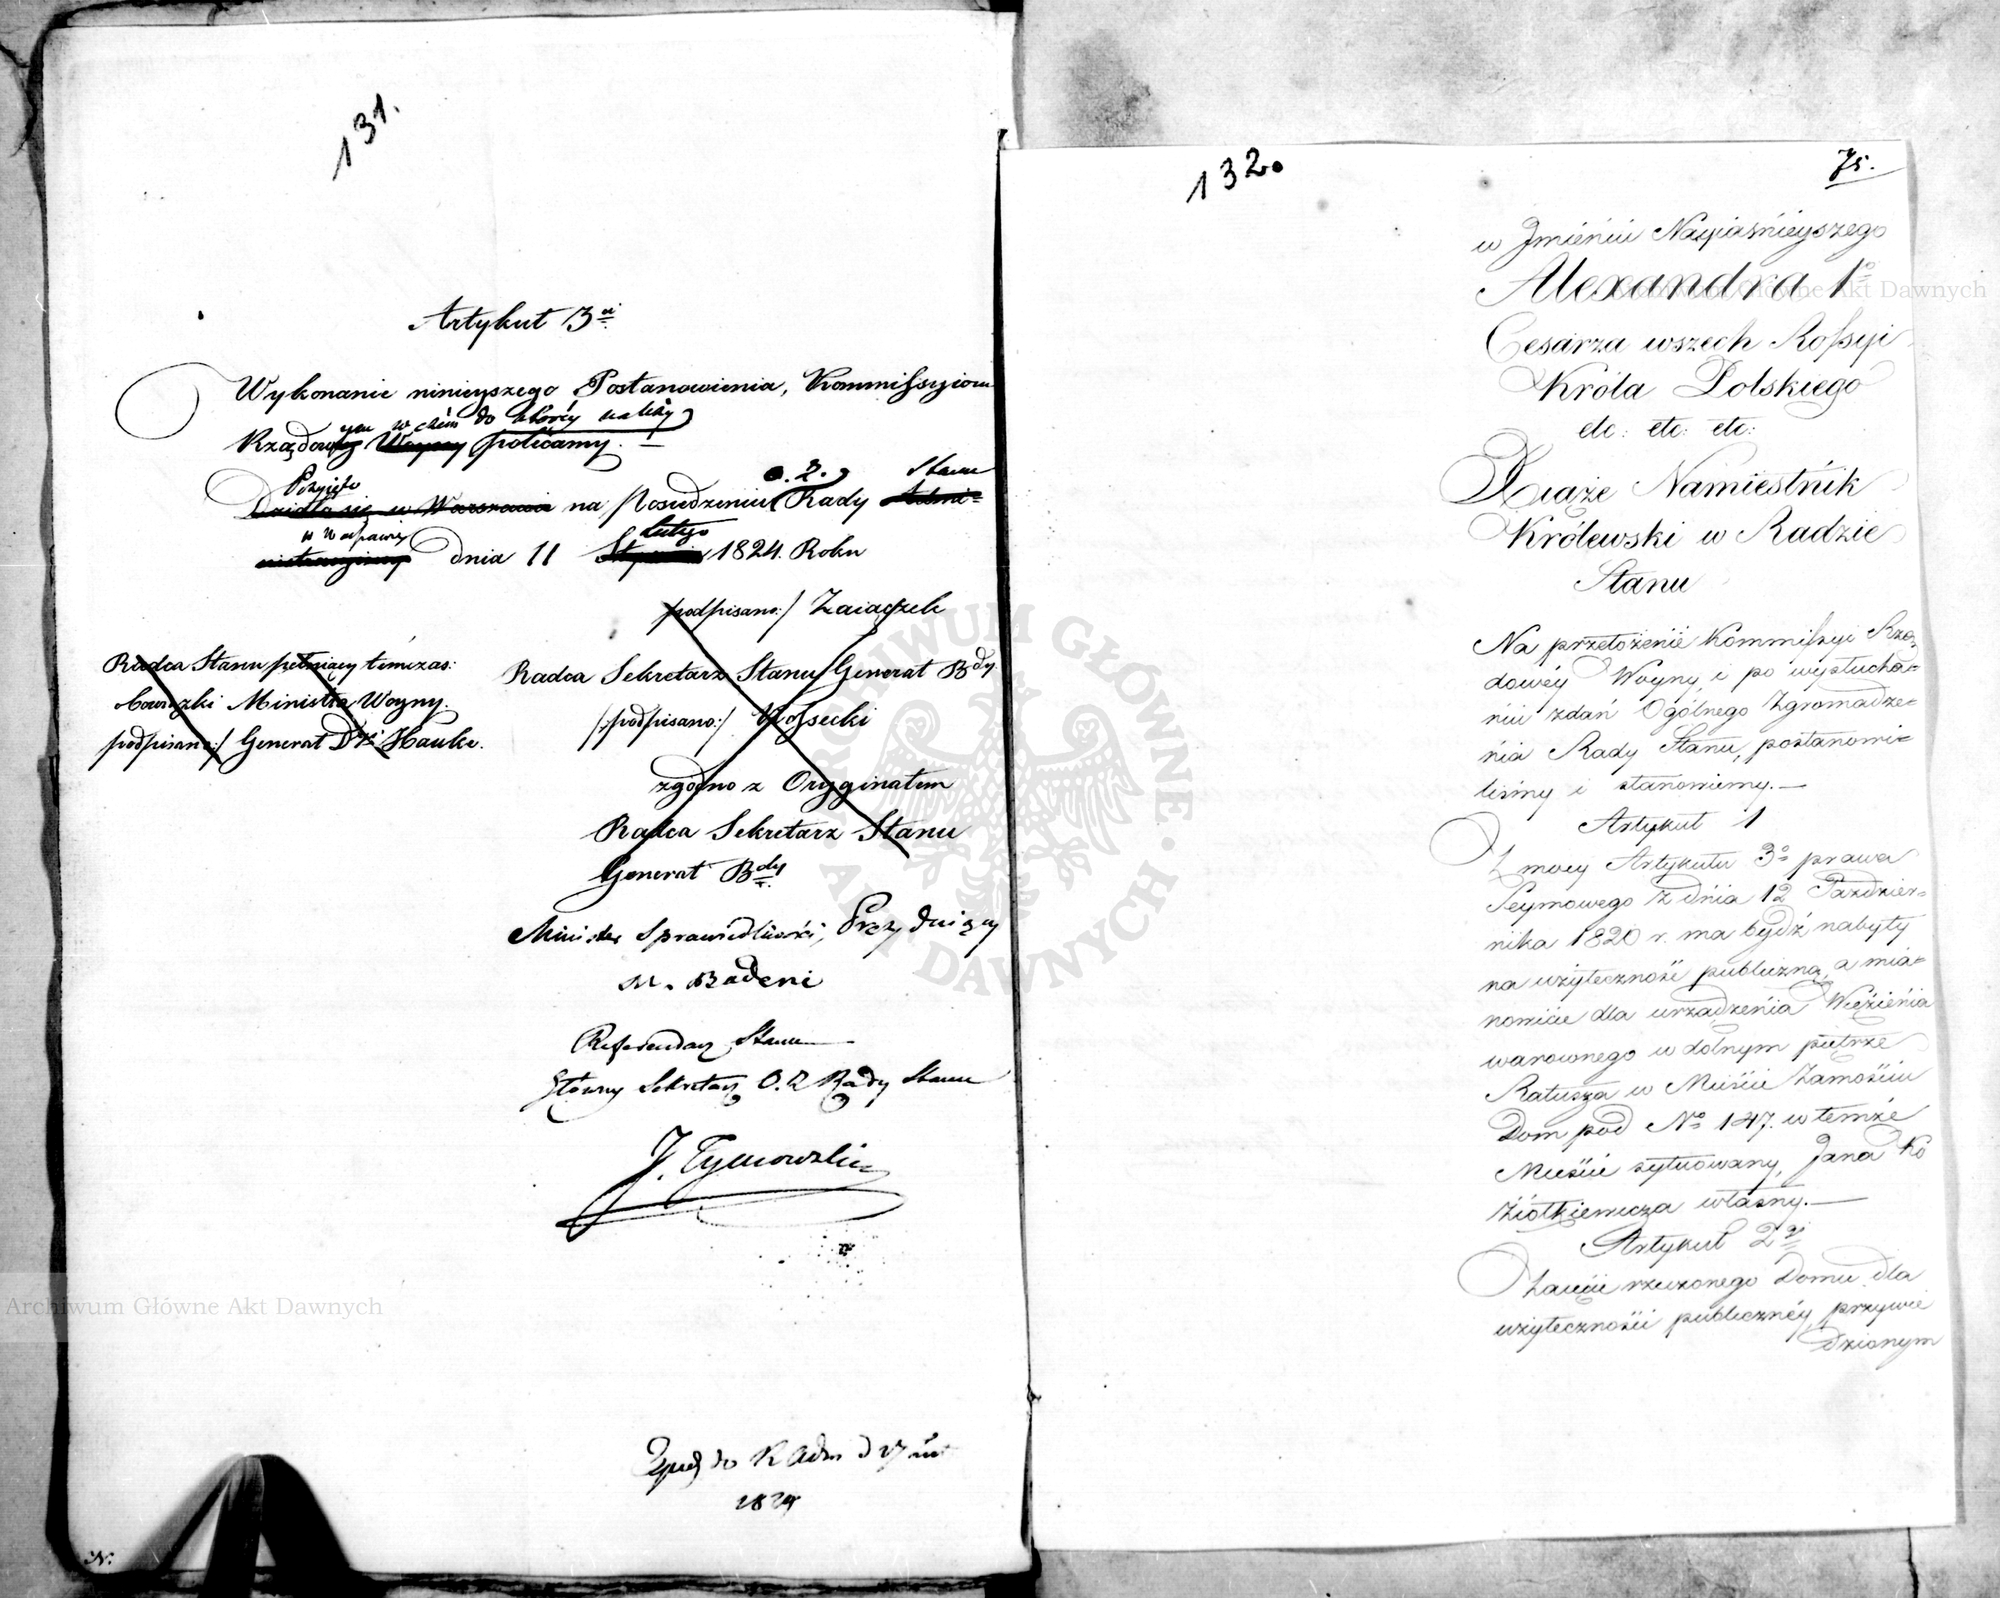 131.
Artykuł 3ci
Wykonanie ninieyszego Postanowienia, Kommissyiom
ym w czém do któréy należy
Rządowéy Woyny polecamy.
Przyięto O. Z. Stanu
Działo się w Warszawie na Posiedzeniu Rady Admi=
w Warszawie Lutego
nistracyiney dnia 11 Stycznia 1824. Roku
podpisano:/ Zaiączek
Radca Stanu pełniący tymczas:
Obowiązki Ministra Woyny.
podpisano:/ General Dyi Hauke.
Radca Sekretarz Stanu Generał Bdy.
/:podpisano:/ Kossecki
zgodno z Oryginałem
Radca Sekretarz Stanu
Generał Bdy
Minister Sprawiedliwości, Prezyduiący
M. Badeni
Referendarz Stanu
Główny Sekretarz O. Z Rady Stanu
J. Tymowski
do R Adm d 17
1824
N:
132.
75.
w Jmieniu Nayiaśnieyszego
Alexandra 1o
Cesarza wszech Rossyi
Króla Polskiego
etc: etc: etc:
Xiąże Namiestnik
Królewski w Radzie
Stanu
Na przełożenie Kommissyi Rzą=
dowéy Woyny, i po wysłucha=
niu zdań Ogólnego Zgromadze=
nia Rady Stanu, postanowi=
liśmy i stanowiemy.—
Artykuł 1
Z mocy Artykułu 3o prawa
Seymowego z dnia 12 Paździer=
nika 1820 r. ma bydź nabyty
na użyteczność publiczną, a mia=
nowicie dla urządzenia Więzienia
warownego w dolnym piętrze
Ratusza w Mieście Zamościu
Dom pod No 147. w temże
Mieście sytuowany, Jana Ko
ziołkiewicza własny.—
Artykuł 2gi
Zaięcie rzeczonego Domu dla
użyteczności publicznéy, przywie
dzionym
Archiwum Główne Akt Dawnych
Archiwum Główne Akt Dawnych
ARCHIWUM GŁÓWNE · AKT DAWNYCH ·